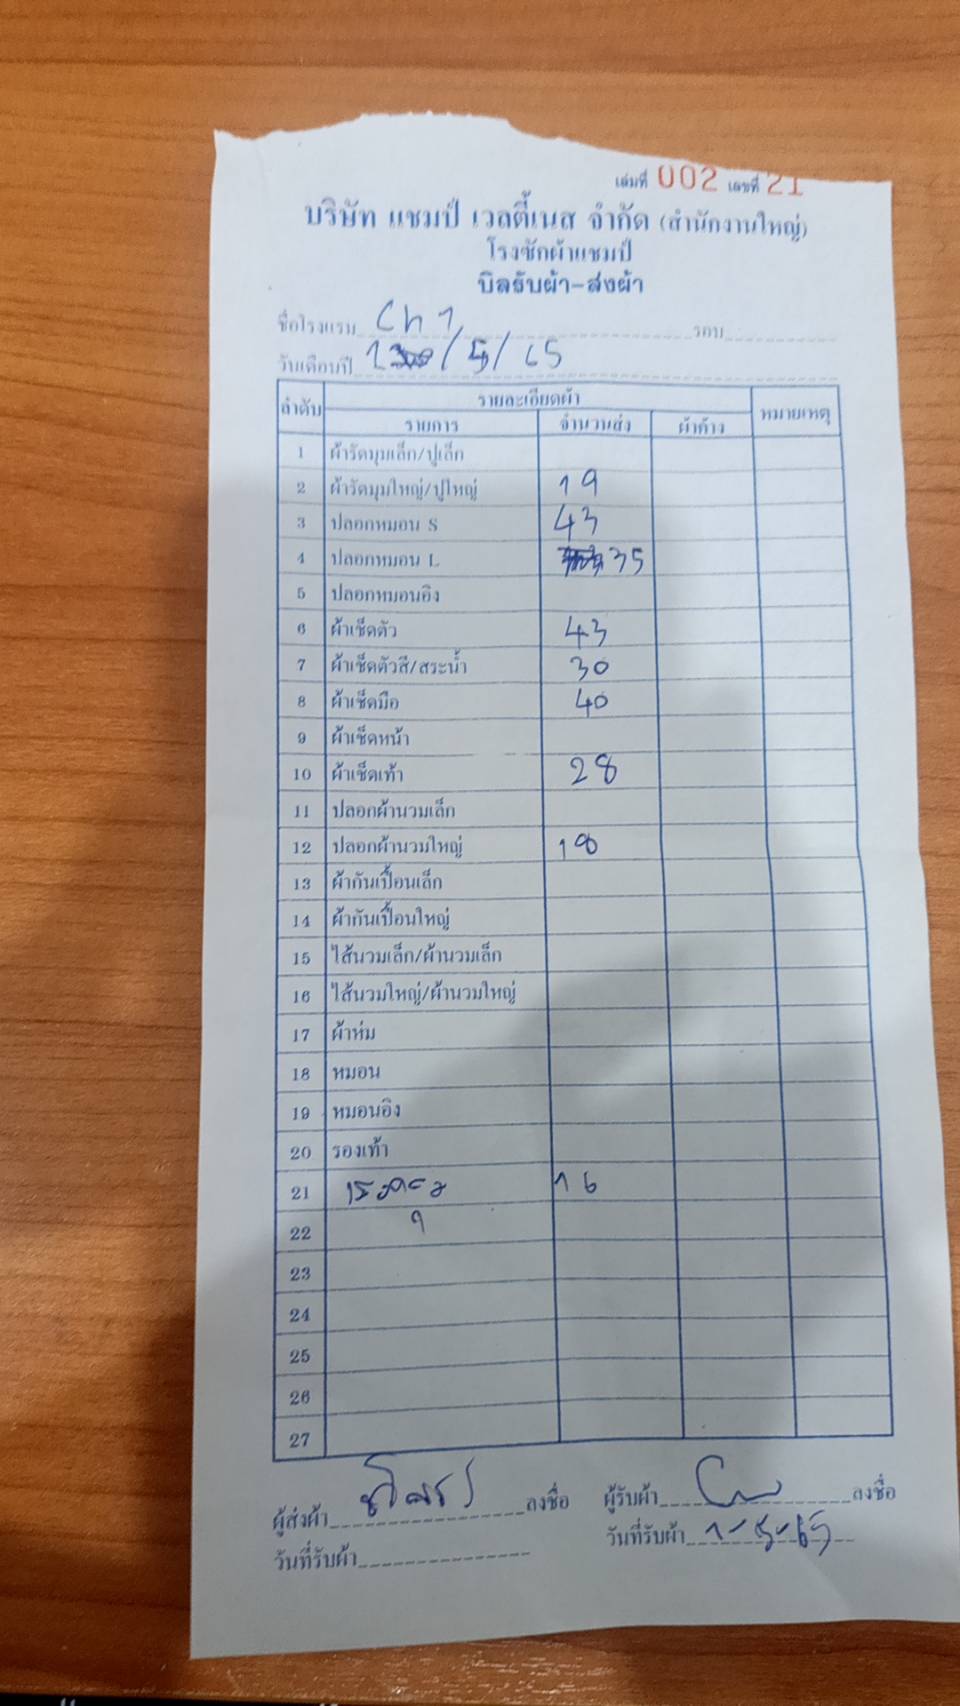 เล่มที่ 002 เลขที่ 21
บริษัท แชมป์ เวลตี้เนส จำกัด (สำนักงานใหญ่)
โรงซักผ้าแชมป์
บิลรับผ้า-ส่งผ้า
ชื่อโรงแรม Ch1 รอบ
วันเดือนปี /5/65
ลำดับ รายละเอียดผ้า หมายเหตุ
รายการ จำนวนส่ง ผ้าค้าง
1 ผ้ารัดมุมเล็ก/ปูเล็ก
2 ผ้ารัดมุมใหญ่/ปูใหญ่ 19
3 ปลอกหมอน S 43
4 ปลอกหมอน L 35
5 ปลอกหมอนอิง
6 ผ้าเช็ดตัว 43
7 ผ้าเช็ดตัวสี/สระน้ำ 30
8 ผ้าเช็ดมือ 40
9 ผ้าเช็ดหน้า
10 ผ้าเช็ดเท้า 28
11 ปลอกผ้านวมเล็ก
12 ปลอกผ้านวมใหญ่ 18
13 ผ้ากันเปื้อนเล็ก
14 ผ้ากันเปื้อนใหญ่
15 ไส้นวมเล็ก/ผ้านวมเล็ก
16 ไส้นวมใหญ่/ผ้านวมใหญ่
17 ผ้าห่ม
18 หมอน
19 หมอนอิง
20 รองเท้า
21 16
22
23
24
25
26
27
ผู้ส่งผ้า ลงชื่อ ผู้รับผ้า ลงชื่อ
วันที่รับผ้า วันที่รับผ้า 1-5-65